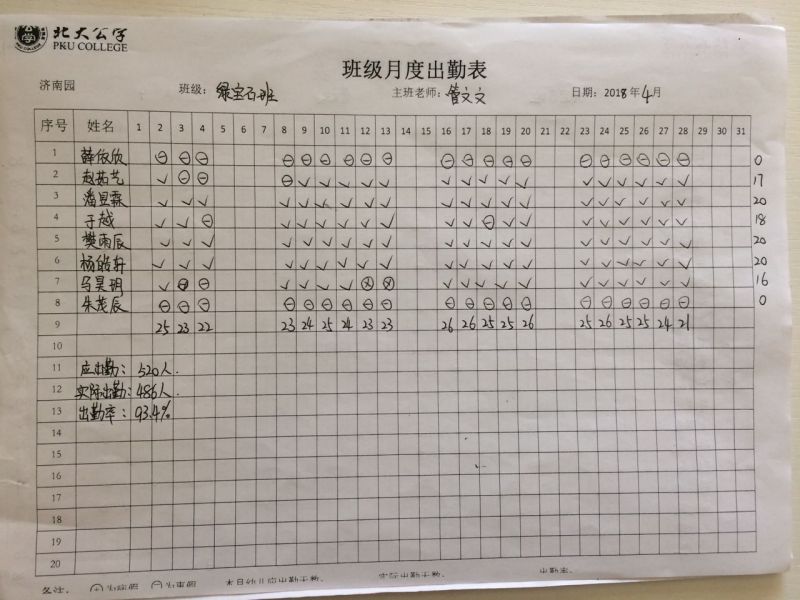 北大公学
PKU COLLEGE
班级月度出勤表
济南园 班级：绿宝石班 主班老师：管文文 日期：2018年4月
序号 姓名 1 2 3 4 5 6 7 8 9 10 11 12 13 14 15 16 17 18 19 20 21 22 23 24 25 26 27 28 29 30 31
1 薛依欣 ⊖ ⊖ ⊖ ⊖ ⊖ ⊖ ⊖ ⊖ ⊖ ⊖ ⊖ ⊖ ⊖ ⊖ ⊖ ⊖ ⊖ ⊖ ⊖ ⊖ 0
2 赵茹艺 ✓ ⊖ ⊖ ⊖ ✓ ✓ ✓ ✓ ✓ ✓ ✓ ✓ ✓ ✓ ✓ ✓ ✓ ✓ ✓ ✓ 17
3 潘昱霖 ✓ ✓ ✓ ✓ ✓ ✓ ✓ ✓ ✓ ✓ ✓ ✓ ✓ ✓ ✓ ✓ ✓ ✓ ✓ ✓ 20
4 于越 ✓ ✓ ⊖ ✓ ✓ ✓ ✓ ✓ ✓ ✓ ✓ ⊖ ✓ ✓ ✓ ✓ ✓ ✓ ✓ ✓ 18
5 樊雨辰 ✓ ✓ ✓ ✓ ✓ ✓ ✓ ✓ ✓ ✓ ✓ ✓ ✓ ✓ ✓ ✓ ✓ ✓ ✓ ✓ 20
6 杨皓轩 ✓ ✓ ✓ ✓ ✓ ✓ ✓ ✓ ✓ ✓ ✓ ✓ ✓ ✓ ✓ ✓ ✓ ✓ ✓ ✓ 20
7 马昊玥 ✓ ⊖ ⊖ ✓ ✓ ✓ ✓ ⊗ ⊗ ✓ ✓ ✓ ✓ ✓ ✓ ✓ ✓ ✓ ✓ ✓ 16
8 朱茂辰 ⊖ ⊖ ⊖ ⊖ ⊖ ⊖ ⊖ ⊖ ⊖ ⊖ ⊖ ⊖ ⊖ ⊖ ⊖ ⊖ ⊖ ⊖ ⊖ ⊖ 0
9 25 23 22 23 24 25 24 23 23 26 26 25 25 26 25 26 25 25 24 21
10
11 应出勤：520人.
12 实际出勤：486人.
13 出勤率：93.4%
14
15
16
17
18
19
20
备注： ⊕为病假 ⊖为事假 本月幼儿应出勤天数： 实际出勤天数： 出勤率：